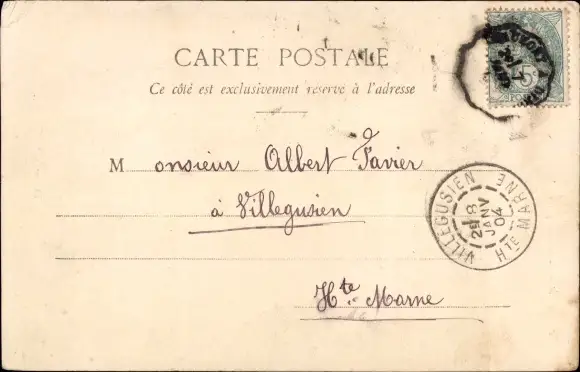 CARTE POSTALE
Ce côté est exclusivement réservé à l'adresse
Monsieur Albert Favier
à Villegusien
Hte Marne
VILLEGUSIEN
8
JANV
04
Hte MARNE
5